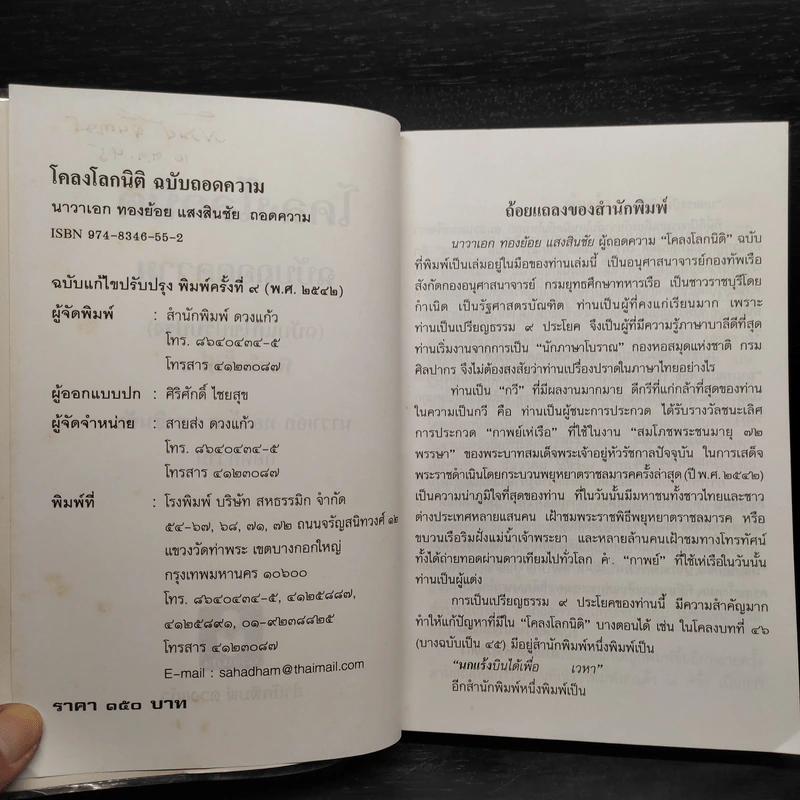 โคลงโลกนิติ ฉบับถอดความ
นาวาเอก ทองย้อย แสงสินชัย ถอดความ
ISBN 974-8346-55-2
ฉบับแก้ไขปรับปรุง พิมพ์ครั้งที่ ๙ (พ.ศ. ๒๕๔๒)
ผู้จัดพิมพ์ : สำนักพิมพ์ ดวงแก้ว
โทร. ๘๖๔๐๔๓๔-๕
โทรสาร ๔๑๒๓๐๘๗
ผู้ออกแบบปก : ศิริศักดิ์ ไชยสุข
ผู้จัดจำหน่าย : สายส่ง ดวงแก้ว
โทร. ๘๖๔๐๔๓๔-๕
โทรสาร ๔๑๒๓๐๘๗
พิมพ์ที่ : โรงพิมพ์ บริษัท สหธรรมิก จำกัด
๕๔-๖๗, ๖๘, ๗๑, ๗๒ ถนนจรัญสนิทวงศ์ ๑๒
แขวงวัดท่าพระ เขตบางกอกใหญ่
กรุงเทพมหานคร ๑๐๖๐๐
โทร. ๘๖๔๐๔๓๔-๕, ๔๑๒๕๘๘๗,
๔๑๒๕๘๙๑, ๐๑-๙๒๓๘๘๒๕
โทรสาร ๔๑๒๓๐๘๗
E-mail : sahadham@thaimail.com
ราคา ๑๕๐ บาท
ถ้อยแถลงของสำนักพิมพ์
นาวาเอก ทองย้อย แสงสินชัย ผู้ถอดความ “โคลงโลกนิติ” ฉบับ
ที่พิมพ์เป็นเล่มอยู่ในมือของท่านเล่มนี้ เป็นอนุศาสนาจารย์กองทัพเรือ
สังกัดกองอนุศาสนาจารย์ กรมยุทธศึกษาทหารเรือ เป็นชาวราชบุรีโดย
กำเนิด เป็นรัฐศาสตรบัณฑิต ท่านเป็นผู้ที่คงแก่เรียนมาก เพราะ
ท่านเป็นเปรียญธรรม ๙ ประโยค จึงเป็นผู้ที่มีความรู้ภาษาบาลีดีที่สุด
ท่านเริ่มงานจากการเป็น “นักภาษาโบราณ” กองหอสมุดแห่งชาติ กรม
ศิลปากร จึงไม่ต้องสงสัยว่าท่านเปรื่องปราดในภาษาไทยอย่างไร
ท่านเป็น “กวี” ที่มีผลงานมากมาย ดีกรีที่แก่กล้าที่สุดของท่าน
ในความเป็นกวี คือ ท่านเป็นผู้ชนะการประกวด ได้รับรางวัลชนะเลิศ
การประกวด “กาพย์เห่เรือ” ที่ใช้ในงาน “สมโภชพระชนมายุ ๗๒
พรรษา” ของพระบาทสมเด็จพระเจ้าอยู่หัวรัชกาลปัจจุบัน ในการเสด็จ
พระราชดำเนินโดยกระบวนพยุหยาตราชลมารคครั้งล่าสุด (ปี พ.ศ. ๒๕๔๒)
เป็นความน่าภูมิใจที่สุดของท่าน ที่ในวันนั้นมีมหาชนทั้งชาวไทยและชาว
ต่างประเทศหลายแสนคน เฝ้าชมพระราชพิธีพยุหยาตราชลมารค หรือ
ขบวนเรือริมฝั่งแม่น้ำเจ้าพระยา และหลายล้านคนเฝ้าชมทางโทรทัศน์
ทั้งได้ถ่ายทอดผ่านดาวเทียมไปทั่วโลก คำ “กาพย์” ที่ใช้เห่เรือในวันนั้น
ท่านเป็นผู้แต่ง
การเป็นเปรียญธรรม ๙ ประโยคของท่านนี้ มีความสำคัญมาก
ทำให้แก้ปัญหาที่มีใน “โคลงโลกนิติ” บางตอนได้ เช่น ในโคลงบทที่ ๔๖
(บางฉบับเป็น ๔๕) มีอยู่สำนักพิมพ์หนึ่งพิมพ์เป็น
“นกแร้งบินได้เพื่อ เวหา”
อีกสำนักพิมพ์หนึ่งพิมพ์เป็น